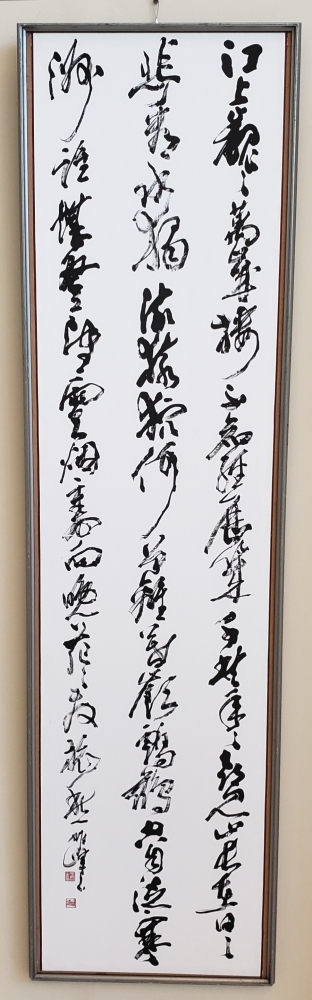 江上巍々萬歲樓不知經歷幾千秋年々喜見山長在日々
悲看水獨流猿狖何曾離暮嶺鸕鶿空自泛寒
洲誰堪登望雲烟裏向晚茫々發旅愁